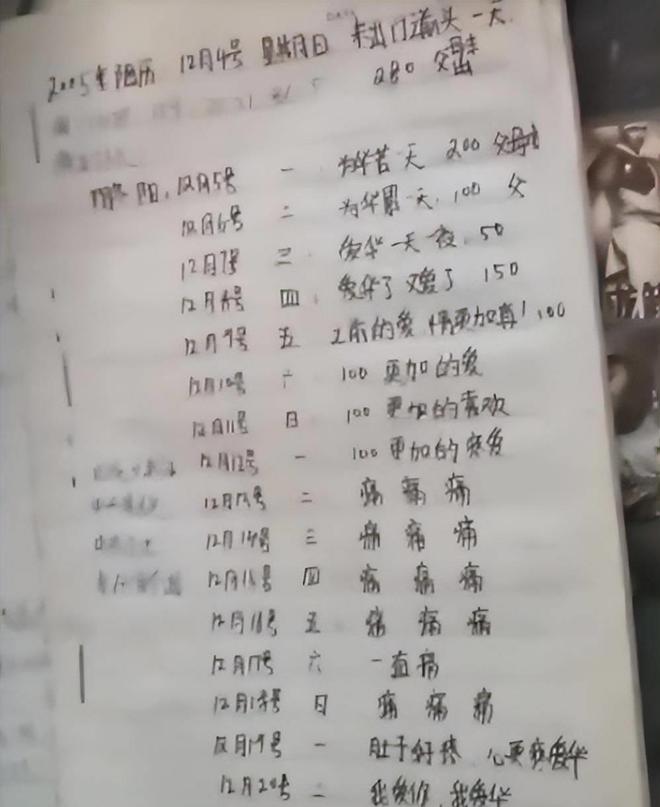 2005年阳历 12月4号 星期日 未出门满头一天
280 父母
阳,12月5号 一 为华苦一天 200 父母
12月6号 二 为华累一天,100 父
12月7号 三 爱华一天夜,50
12月8号 四 爱华了又爱了 150
12月9号 五 的爱 情更加真!100
12月10号 六 100 更加的爱
12月11号 日 100 更加的喜欢
12月12号 一 100 更加的疼爱
12月13号 二 痛 痛 痛
12月14号 三 痛 痛 痛
12月15号 四 痛 痛 痛
12月16号 五 痛 痛 痛
12月17号 六 一直痛
12月18号 日 痛 痛 痛
12月19号 一 肚子好疼 心更疼爱华
12月20号 二 我爱你 我爱华